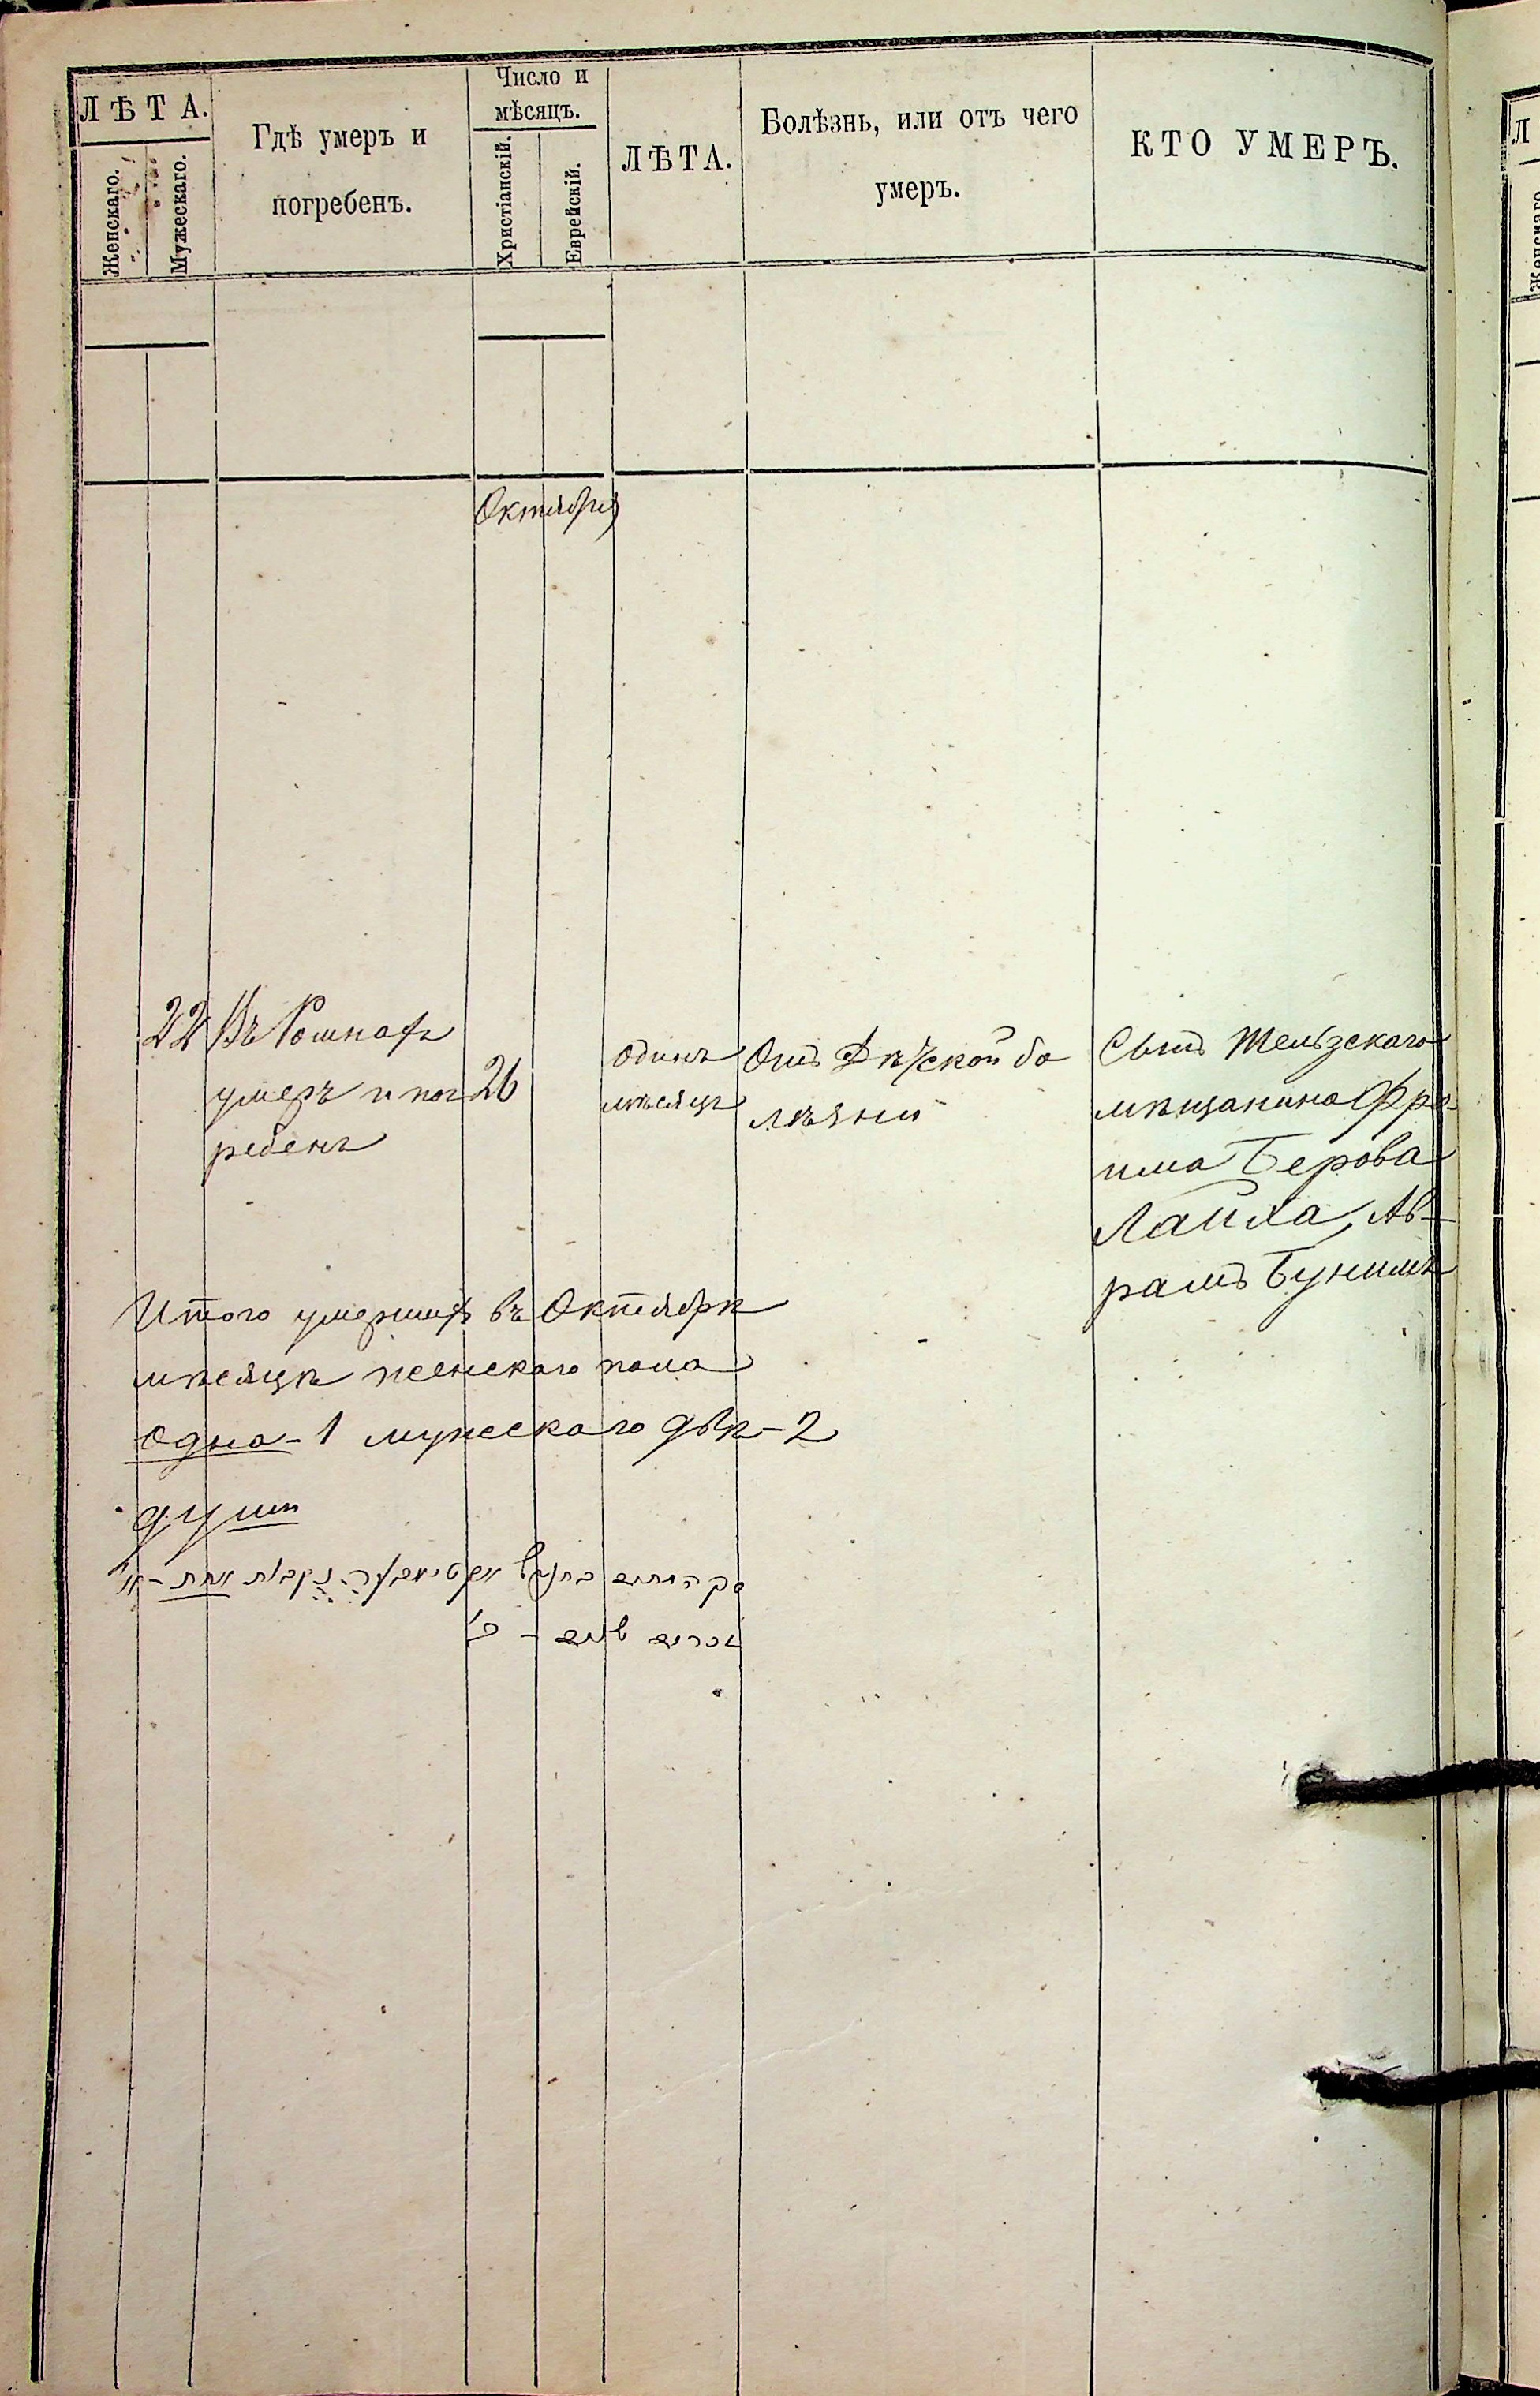 ЛѢТА.
Женскаго.
Мужескаго.
Гдѣ умеръ и
погребенъ.
Число и
мѣсяцъ.
Христіанскій.
Еврейскій.
ЛѢТА.
Болѣзнь, или отъ чего
умеръ.
КТО УМЕРЪ.
Октября
22
Въ
умеръ и пог
ребенъ
26
одинъ
мѣсяцъ
Отъ Дѣтской бо
лѣзни
Сынъ
мѣщанина Фро
има Берова
Ав-
рамъ Бунимъ
Итого умершихъ въ Октябрѣ
мѣсяцѣ женскаго пола
одна - 1 мужескаго двѣ - 2
души
Л
Женскаго